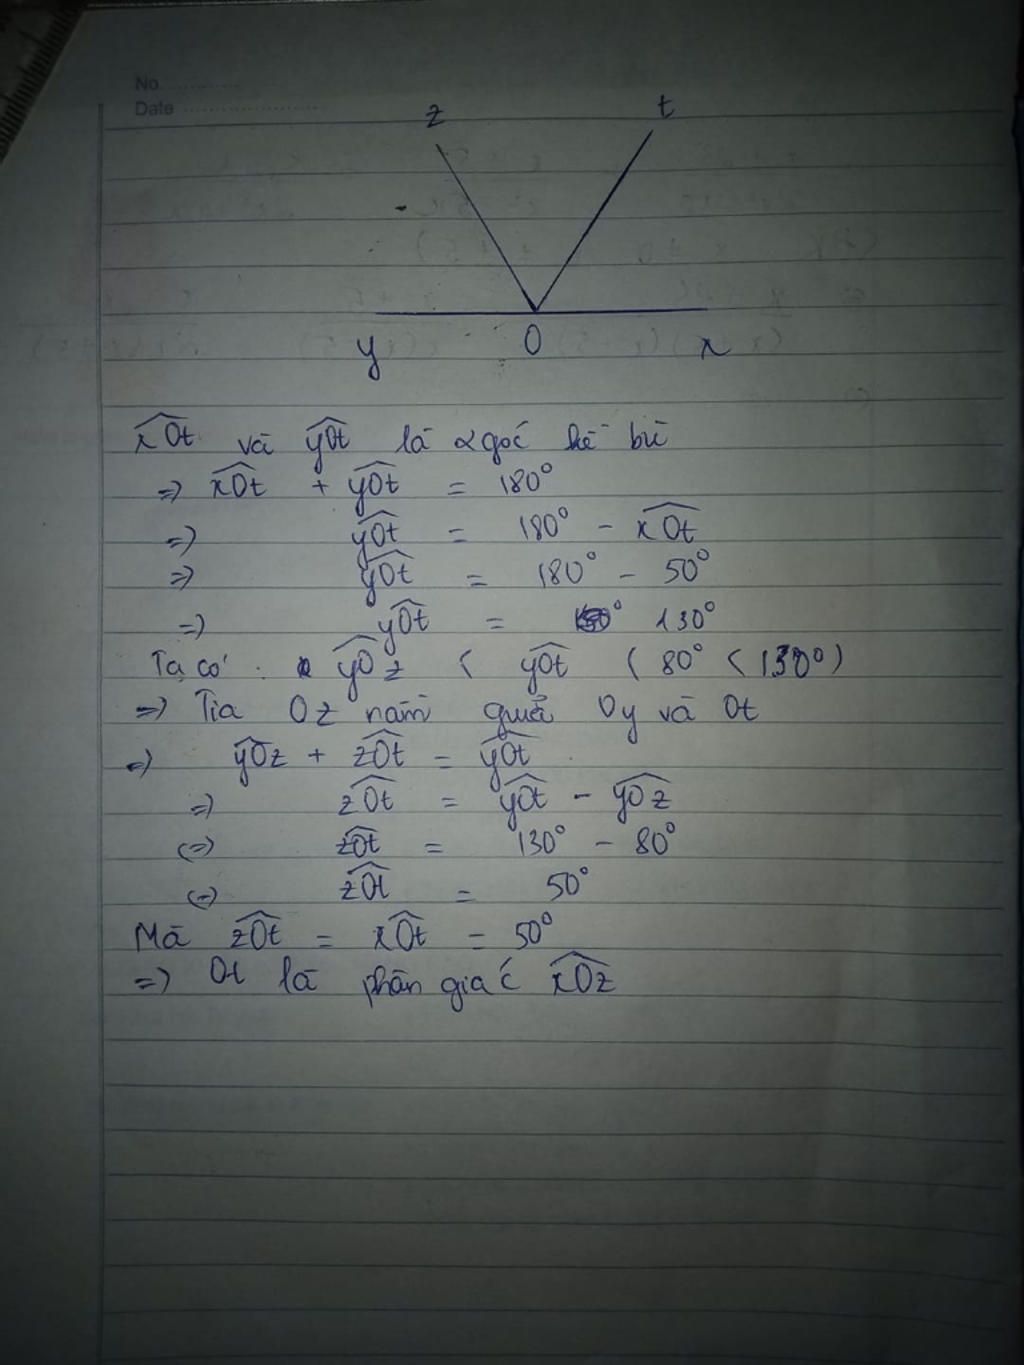 No.
Date
z t
y O x
xOt và yOt là 2 góc kề bù
=> xOt + yOt = 180°
=> yOt = 180° - xOt
=> yOt = 180° - 50°
=> yOt = 130°
Ta có: yOz < yOt (80° < 130°)
=> Tia Oz nằm giữa Oy và Ot
=> yOz + zOt = yOt
=> zOt = yOt - yOz
(=) zOt = 130° - 80°
(=) zOt = 50°
Mà zOt = xOt = 50°
=> Ot là phân giác xOz